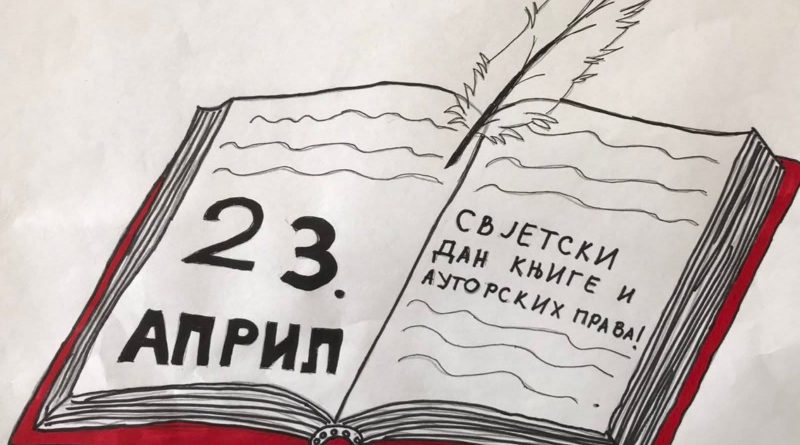 23.
АПРИЛ
СВЈЕТСКИ
ДАН КЊИГЕ И
АУТОРСКИХ ПРАВА!